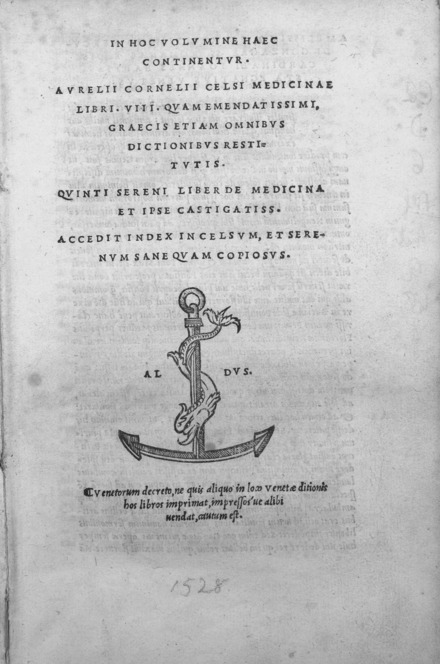 IN HOC VOLVMINE HAEC
CONTINENTVR.
AVRELII CORNELII CELSI MEDICINAE
LIBRI. VIII. QVAM EMENDATISSIMI,
GRAECIS ETIAM OMNIBVS
DICTIONIBVS RESTI=
TVTIS.
QVINTI SERENI LIBER DE MEDICINA
ET IPSE CASTIGATISS.
ACCEDIT INDEX IN CELSVM, ET SERE=
NVM SANE QVAM COPIOSVS.
AL DVS.
Venetorum decreto, ne quis aliquo in loco Venetæ ditionis
hos libros imprimat, impressos'ue alibi
uendat, cautum est.
1528